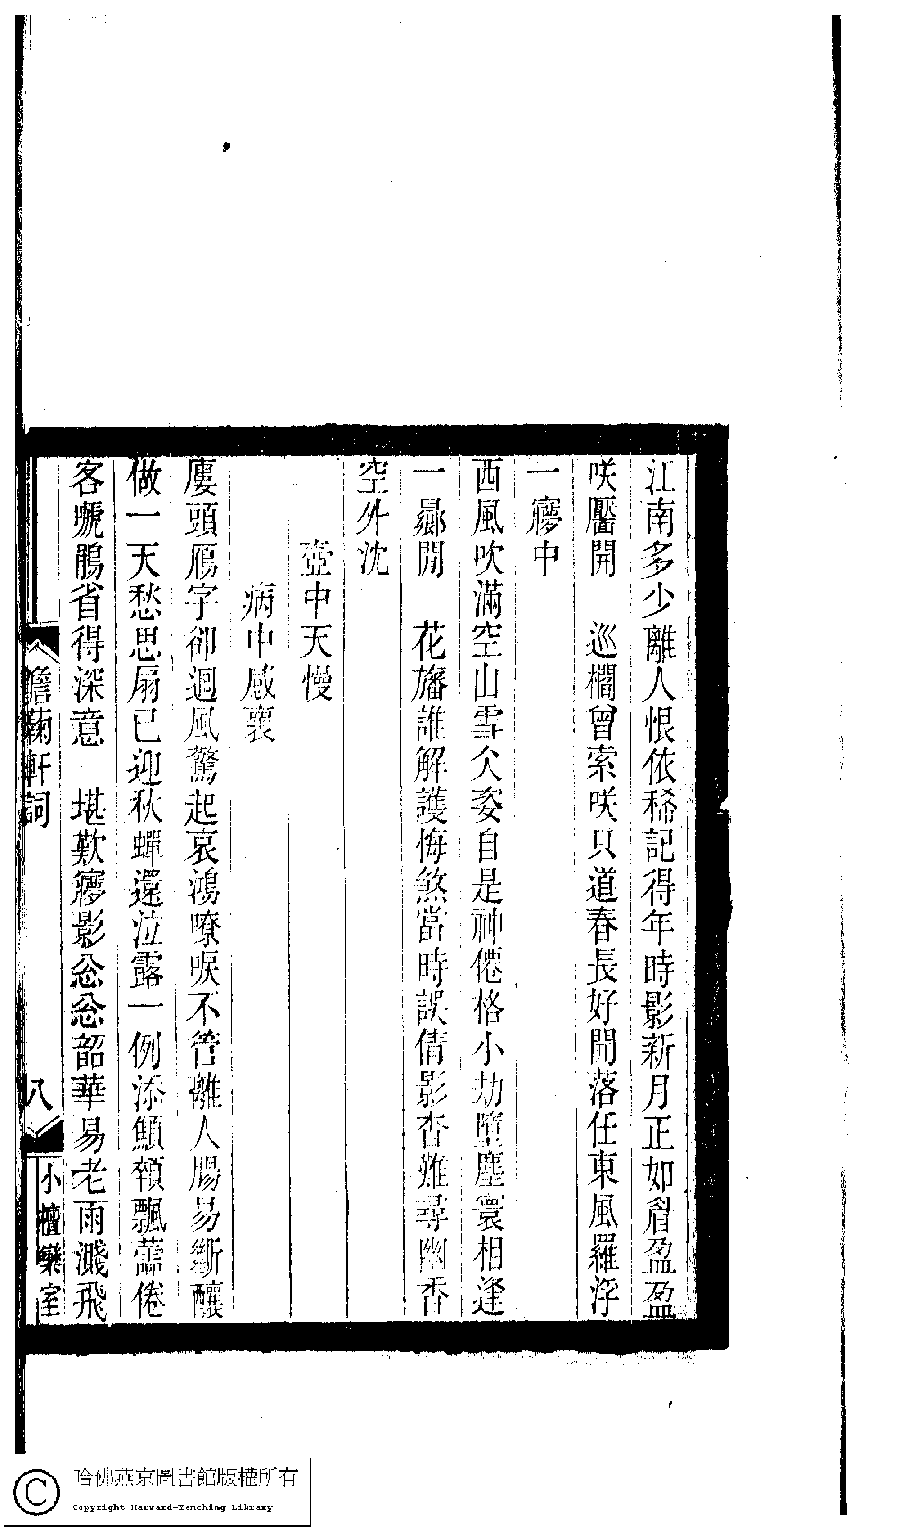 江南多少離人恨依稀記得年時影新月正如眉盈盈
咲靨開　巡櫩曾索咲只道春長好開落任東風羅浮
一㝱中
西風吹滿空山雪仌姿自是神僊格小劫墮塵寰相逢
一㬎閒　花旛誰解護悔煞當時誤倩影杳難尋幽香
空外沈
壺中天慢
病中感褱
廔頭鴈字卻迴風驚起哀鴻嘹唳不管離人腸易斷釀
做一天愁思扇已迎秋蟬還泣露一例添顦顇飄蘦倦
客號鵑省得深意　堪歎㝱影忩忩韶華易老雨濺飛
澹蘜軒詞
八
小檀欒室
哈佛燕京圖書館版權所有
Copyright Harvard-Yenching Library